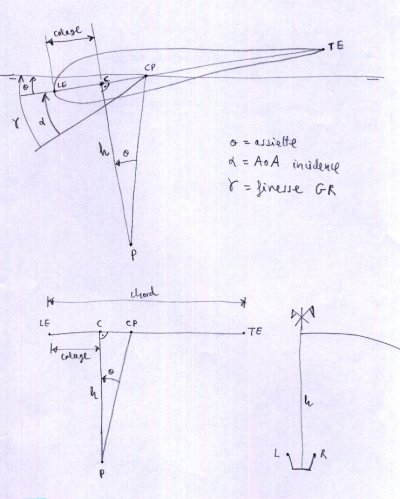 calage
TE
CP
θ
LE
C
γ
α
h
θ
θ = assiette
α = AoA incidence
γ = finesse GR
P
chord
LE
C
CP
TE
calage
θ
h
h
L
R
P